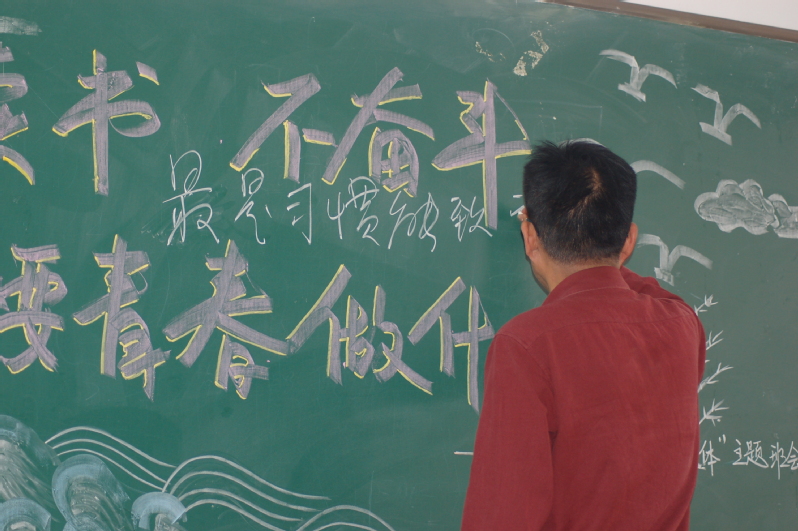 书 不奋斗
最是习惯能致
要青春做什
体"主题班会